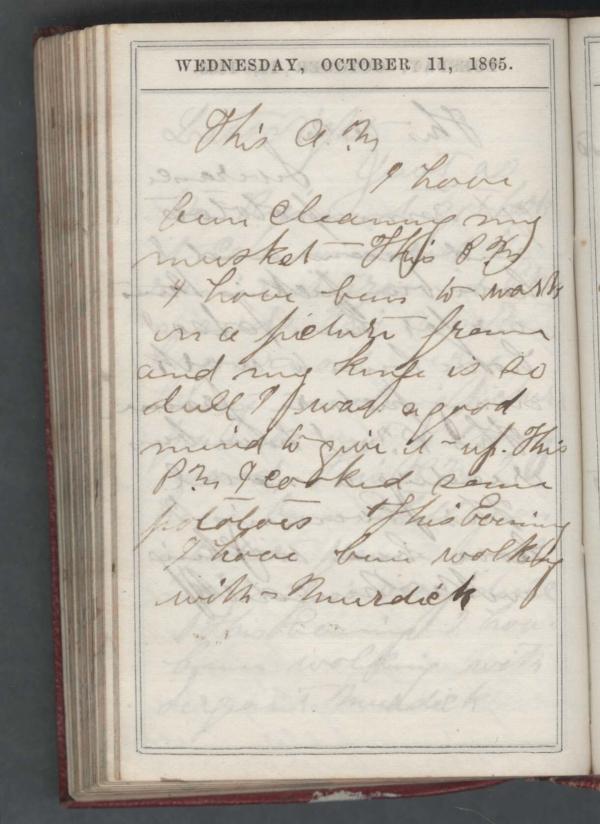 WEDNESDAY, OCTOBER 11, 1865.
This A M
I have
been cleaning my
musket - This P M
I have been to work
on a picture frame
and my knife is so
dull I was a good
mind to give it up. This
P M I cooked some
potatoes This Evening
I have been walking
with Murdick
This Evening I have
been walking with
Murdick